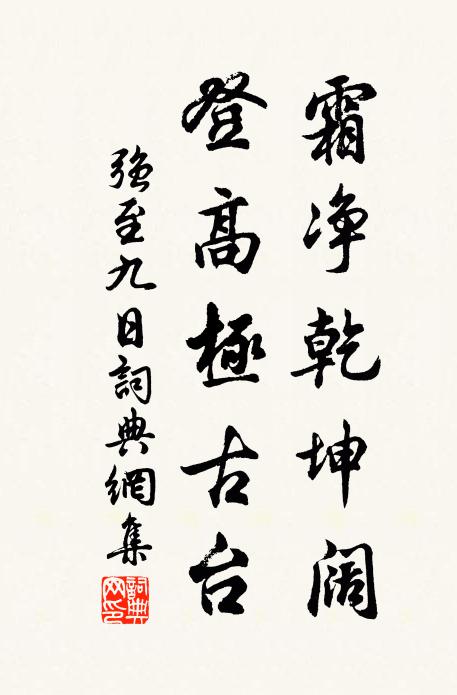 霜净乾坤闊
登高極古台
強至九日詞典網集
詞典網印